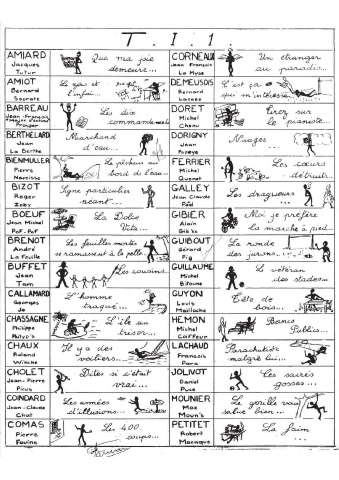 T. I. 1.
AMIARD
Jacques
Tutur
Que ma joie
demeure...
AMIOT
Bernard
Socrate
Le yéti et
l'enfai...
BARREAU
Jean-François
Prosper
Les dix
commandements
BERTHELARD
Jean
La Berthe
Marchand
d'eau...
BIENMULLER
Pierre
Narcisse
Le pêcheur au
bord de l'eau...
BIZOT
Roger
Zoby
Signe particulier
néant...
BOEUF
Jean Michel
Pof.Pof
La Dolce
Vita...
BRENOT
André
La Fouille
Les feuilles mortes
se ramassent à la pelle
BUFFET
Jean
Tam
Les cousins...
CALLAMARD
Georges
Jo
L'homme
traqué...
CHASSAGNE
Philippe
L'île au
trésor...
CHAUX
Roland
Il y a des
voiliers...
CHOLET
Jean-Pierre
Picus
Dites si c'était
vrai...
COINDARD
Jean-Claude
Chat
Les années
d'illusions...
COMAS
Pierre
Fouine
Les 400
coups...
CORNEAU
Jean François
La Muse
Un étranger
au paradis...
DEMEUSOIS
Bernard
C'est ça
que m'intéresse
DORET
Michel
Chanu
Tirez sur
le pianiste...
DORIGNY
Jean
Popeye
Nuages...
FERRIER
Michel
Les cœurs
détruits...
GALLEY
Jean Claude
Les dragueurs...
GIBIER
Alain
Gib's
Moi je préfère
la marche à pied...
GUIBOUT
Gérard
Pig
La ronde
des jurons...
GUILLAUME
Michel
Le vétéran
des stades...
GUYON
Louis
Mailloche
Tête de
bois...
HEMON
Michel
Coiffeur
Bancs
Publics...
LACHAUD
François
Para
Parachutiste
malgré lui...
JOLIVOT
Daniel
Puce
Ces sacrés
gosses...
MOUNIER
Max
Moun's
Le gorille vous
salue bien...
PETITET
Robert
Macaque
La faim
...